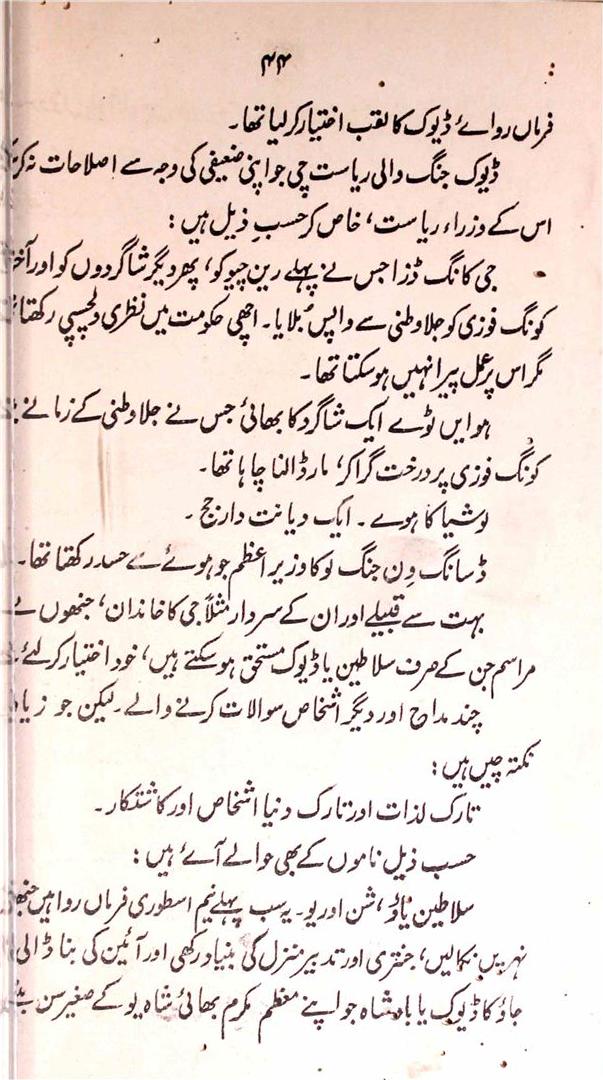 ۴۴
فرماں روائے ڈیوک کا لقب اختیار کر لیا تھا۔
ڈیوک جنگ والی ریاست چی جو اپنی ضعیفی کی وجہ سے اصلاحات نہ
اس کے وزراء ریاست، خاص کر حسبِ ذیل ہیں:
جی کانگ ڈزا جس نے پہلے رین چیو کو، پھر دیگر شاگردوں کو اور
کونگ فوزی کو جلا وطنی سے واپس بُلایا۔ اچھی حکومت میں نظری دلچسپی رکھتا
مگر اس پر عمل پیرا نہیں ہو سکتا تھا۔
ہوایں ٹوے ایک شاگرد کا بھائی جس نے جلا وطنی کے زمانے
کونگ فوزی پر درخت گرا کر، مار ڈالنا چاہا تھا۔
لوشیا کا ہوے۔ ایک دیانت دار جج۔
ڈسانگ وِن جنگ لو کا وزیر اعظم جو ہوئے سے حسد رکھتا تھا۔
بہت سے قبیلے اور ان کے سردار مثلاً جی کا خاندان، جنھوں نے
مراسم جن کے صرف سلاطین یا ڈیوک مستحق ہو سکتے ہیں، خود اختیار کر لئے
چند مداح اور دیگر اشخاص سوالات کرنے والے۔ لیکن جو
نکتہ چیں ہیں:
تارک لذات اور تارک دنیا اشخاص اور کاشتکار۔
حسب ذیل ناموں کے بھی حوالے آئے ہیں:
سلاطین یاؤ، شن اور یو۔ یہ سب پہلے نیم اسطوری فرماں روا ہیں
نہریں نکالیں، جنتری اور تدبیر منزل کی بنیاد رکھی اور آئین کی بنا ڈالی
جاؤ کا ڈیوک یا بادشاہ جو اپنے معظم مکرم بھائی شاہ یو کے صغیر سن